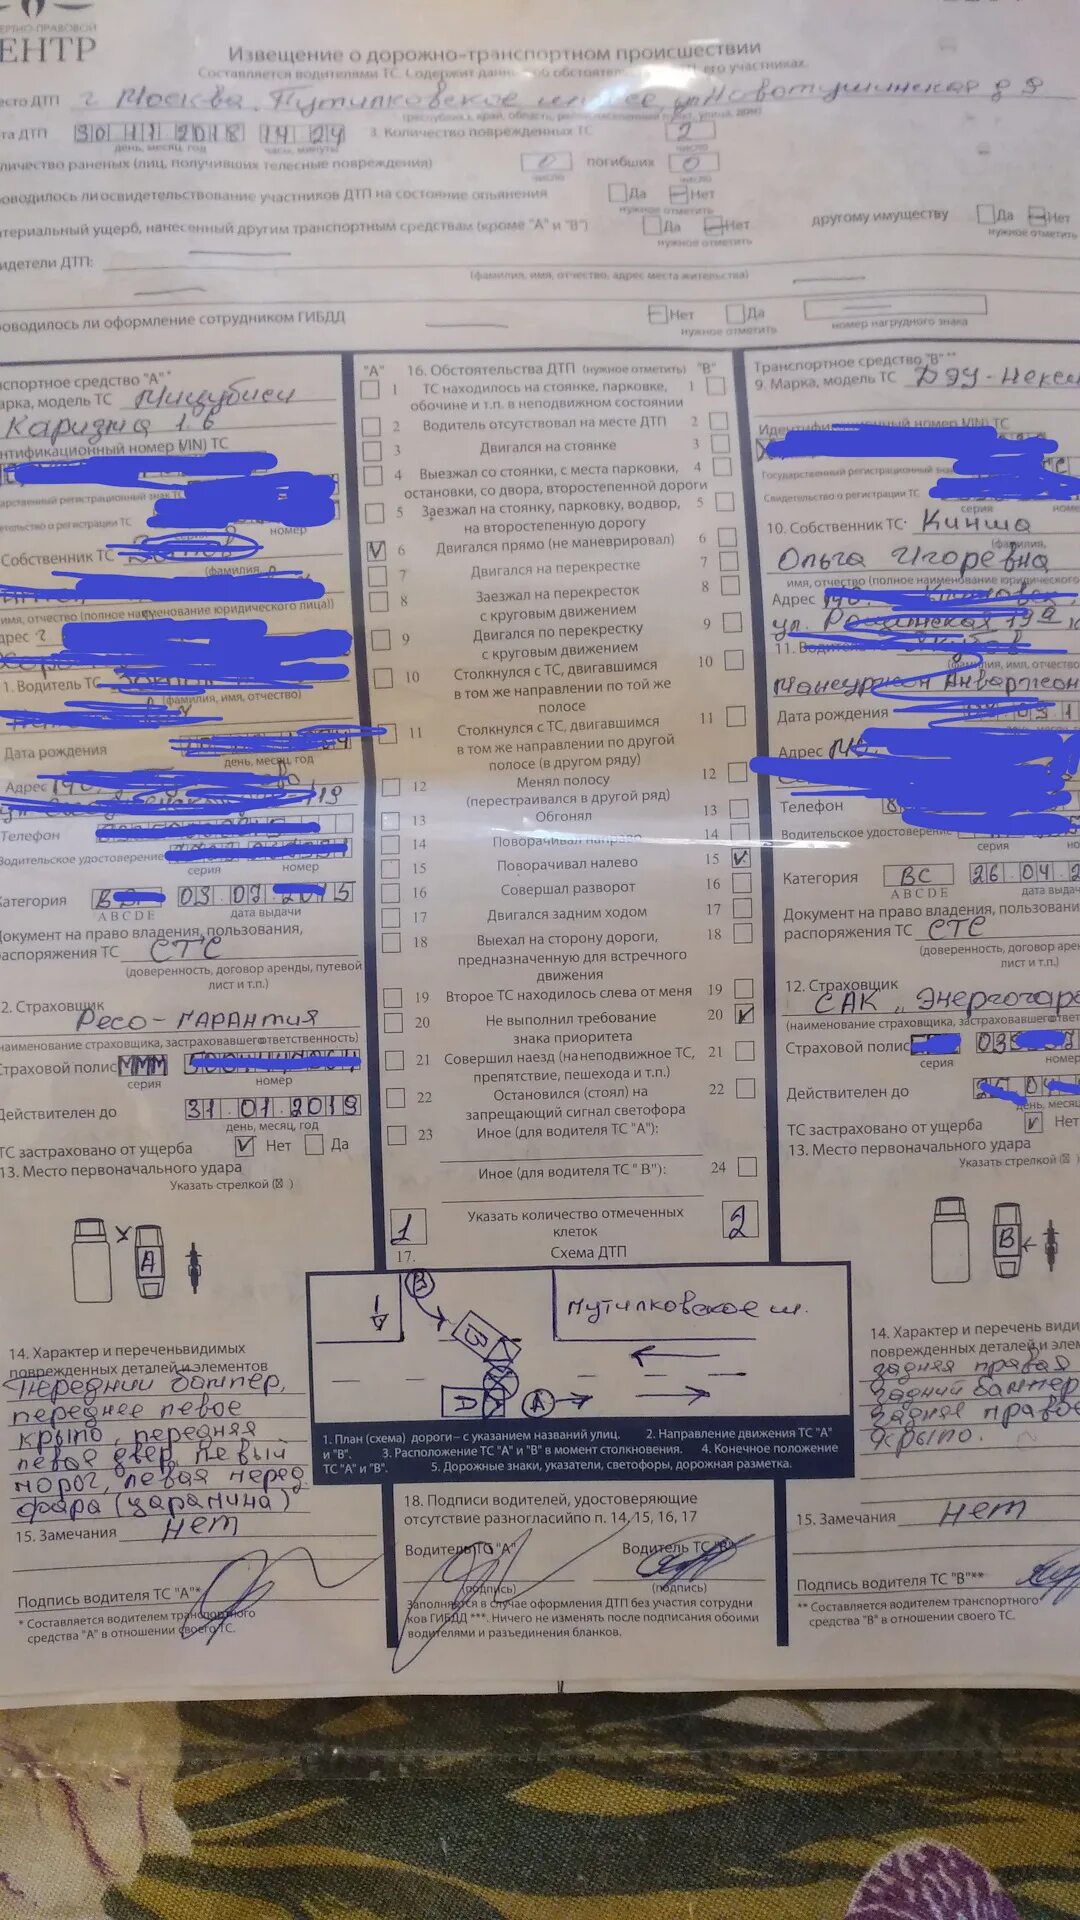 ЕРТНО-ПРАВОВОЙ
ЕНТР
Извещение о дорожно-транспортном происшествии
Составляется водителями ТС. Содержит данные об обстоятельствах его участниках.
есто ДТП г. Москва, Путилковское шоссе, ул Новотушинская д 9
та ДТП 30 11 2018 14 24 3. Количество поврежденных ТС 2
день, месяц, год часы, минуты число
личество раненых (лиц, получивших телесные повреждения) 0 погибших 0
число число
оводилось ли освидетельствование участников ДТП на состояние опьянения Да Нет
нужное отметить
териальный ущерб, нанесенный другим транспортным средствам (кроме "А" и "В") Да Нет другому имуществу Да Нет
нужное отметить нужное отметить
идетели ДТП:
(фамилия, имя, отчество, адрес места жительства)
оводилось ли оформление сотрудником ГИБДД Нет Да
нужное отметить номер нагрудного знака
нспортное средство "А"*
арка, модель ТС Мицубиси
Каризма 1.6
нтификационный номер (VIN) ТС
арственный регистрационный знак ТС
етельство о регистрации ТС
номер
Собственник ТС
(фамилия,
имя, отчество (полное наименование юридического лица))
дрес г
1. Водитель ТС
(фамилия, имя, отчество)
Дата рождения
день, месяц, год
Адрес
Телефон
Водительское удостоверение
серия номер
Категория В 03 07 2015
A B C D E дата выдачи
Документ на право владения, пользования,
распоряжения ТС СТС
(доверенность, договор аренды, путевой
лист и т.п.)
2. Страховщик
Ресо-Гарантия
(наименование страховщика, застраховавшего ответственность)
Страховой полис МММ
серия номер
Действителен до 31.01.2019
день, месяц, год
ТС застраховано от ущерба Нет Да
13. Место первоначального удара
Указать стрелкой ( )
А
14. Характер и перечень видимых
поврежденных деталей и элементов
Передний бампер,
переднее левое
крыло, передняя
левая двер, левый
порог, левая перед.
фара (царапина)
15. Замечания нет
Подпись водителя ТС "А"*
* Составляется водителем транспортного
средства "А" в отношении своего ТС.
"А" 16. Обстоятельства ДТП (нужное отметить) "В"
1 ТС находилось на стоянке, парковке, 1
обочине и т.п. в неподвижном состоянии
2 Водитель отсутствовал на месте ДТП 2
3 Двигался на стоянке 3
4 Выезжал со стоянки, с места парковки, 4
остановки, со двора, второстепенной дороги
5 Заезжал на стоянку, парковку, во двор, 5
на второстепенную дорогу
6 Двигался прямо (не маневрировал) 6
7 Двигался на перекрестке 7
8 Заезжал на перекресток 8
с круговым движением
9 Двигался по перекрестку 9
с круговым движением
10 Столкнулся с ТС, двигавшимся 10
в том же направлении по той же
полосе
11 Столкнулся с ТС, двигавшимся 11
в том же направлении по другой
полосе (в другом ряду)
12 Менял полосу 12
(перестраивался в другой ряд)
13 Обгонял 13
14 Поворачивал направо 14
15 Поворачивал налево 15
16 Совершал разворот 16
17 Двигался задним ходом 17
18 Выехал на сторону дороги, 18
предназначенную для встречного
движения
19 Второе ТС находилось слева от меня 19
20 Не выполнил требование 20
знака приоритета
21 Совершил наезд (на неподвижное ТС, 21
препятствие, пешехода и т.п.)
22 Остановился (стоял) на 22
запрещающий сигнал светофора
23 Иное (для водителя ТС "А"):
Иное (для водителя ТС "В"): 24
1 Указать количество отмеченных 2
клеток
17. Схема ДТП
В
Путилковское ш.
В
А
1. План (схема) дороги – с указанием названий улиц. 2. Направление движения ТС "А"
и "В". 3. Расположение ТС "А" и "В" в момент столкновения. 4. Конечное положение
ТС "А" и "В". 5. Дорожные знаки, указатели, светофоры, дорожная разметка.
18. Подписи водителей, удостоверяющие
отсутствие разногласий по п. 14, 15, 16, 17
Водитель ТС "А" Водитель ТС "В"
(подпись) (подпись)
Заполняется в случае оформления ДТП без участия сотрудни
ков ГИБДД ***. Ничего не изменять после подписания обоими
водителями и разъединения бланков.
Транспортное средство "В"**
9. Марка, модель ТС ДЭУ-Некси
Идентификационный номер (VIN) ТС
Государственный регистрационный знак
Свидетельство о регистрации ТС
серия номер
10. Собственник ТС Кинша
(фамилия,
Ольга Игоревна
имя, отчество (полное наименование юридического
Адрес
11. Водитель
(фамилия, имя, отчество
Дата рождения
Адрес
Телефон 8
Водительское удостоверение
серия но
Категория ВС 26.04.2
A B C D E дата выдачи
Документ на право владения, пользования
распоряжения ТС СТС
(доверенность, договор арен
лист и т.п.)
12. Страховщик
САК „Энергогара
(наименование страховщика, застраховавшего ответс
Страховой полис
серия номер
Действителен до
день, месяц,
ТС застраховано от ущерба Нет
13. Место первоначального удара
Указать стрелкой ( )
В
14. Характер и перечень види
поврежденных деталей и элеме
задняя правая
задний бампер
заднее правое
крыло.
15. Замечания нет
Подпись водителя ТС "В"**
** Составляется водителем транспортного
средства "В" в отношении своего ТС.